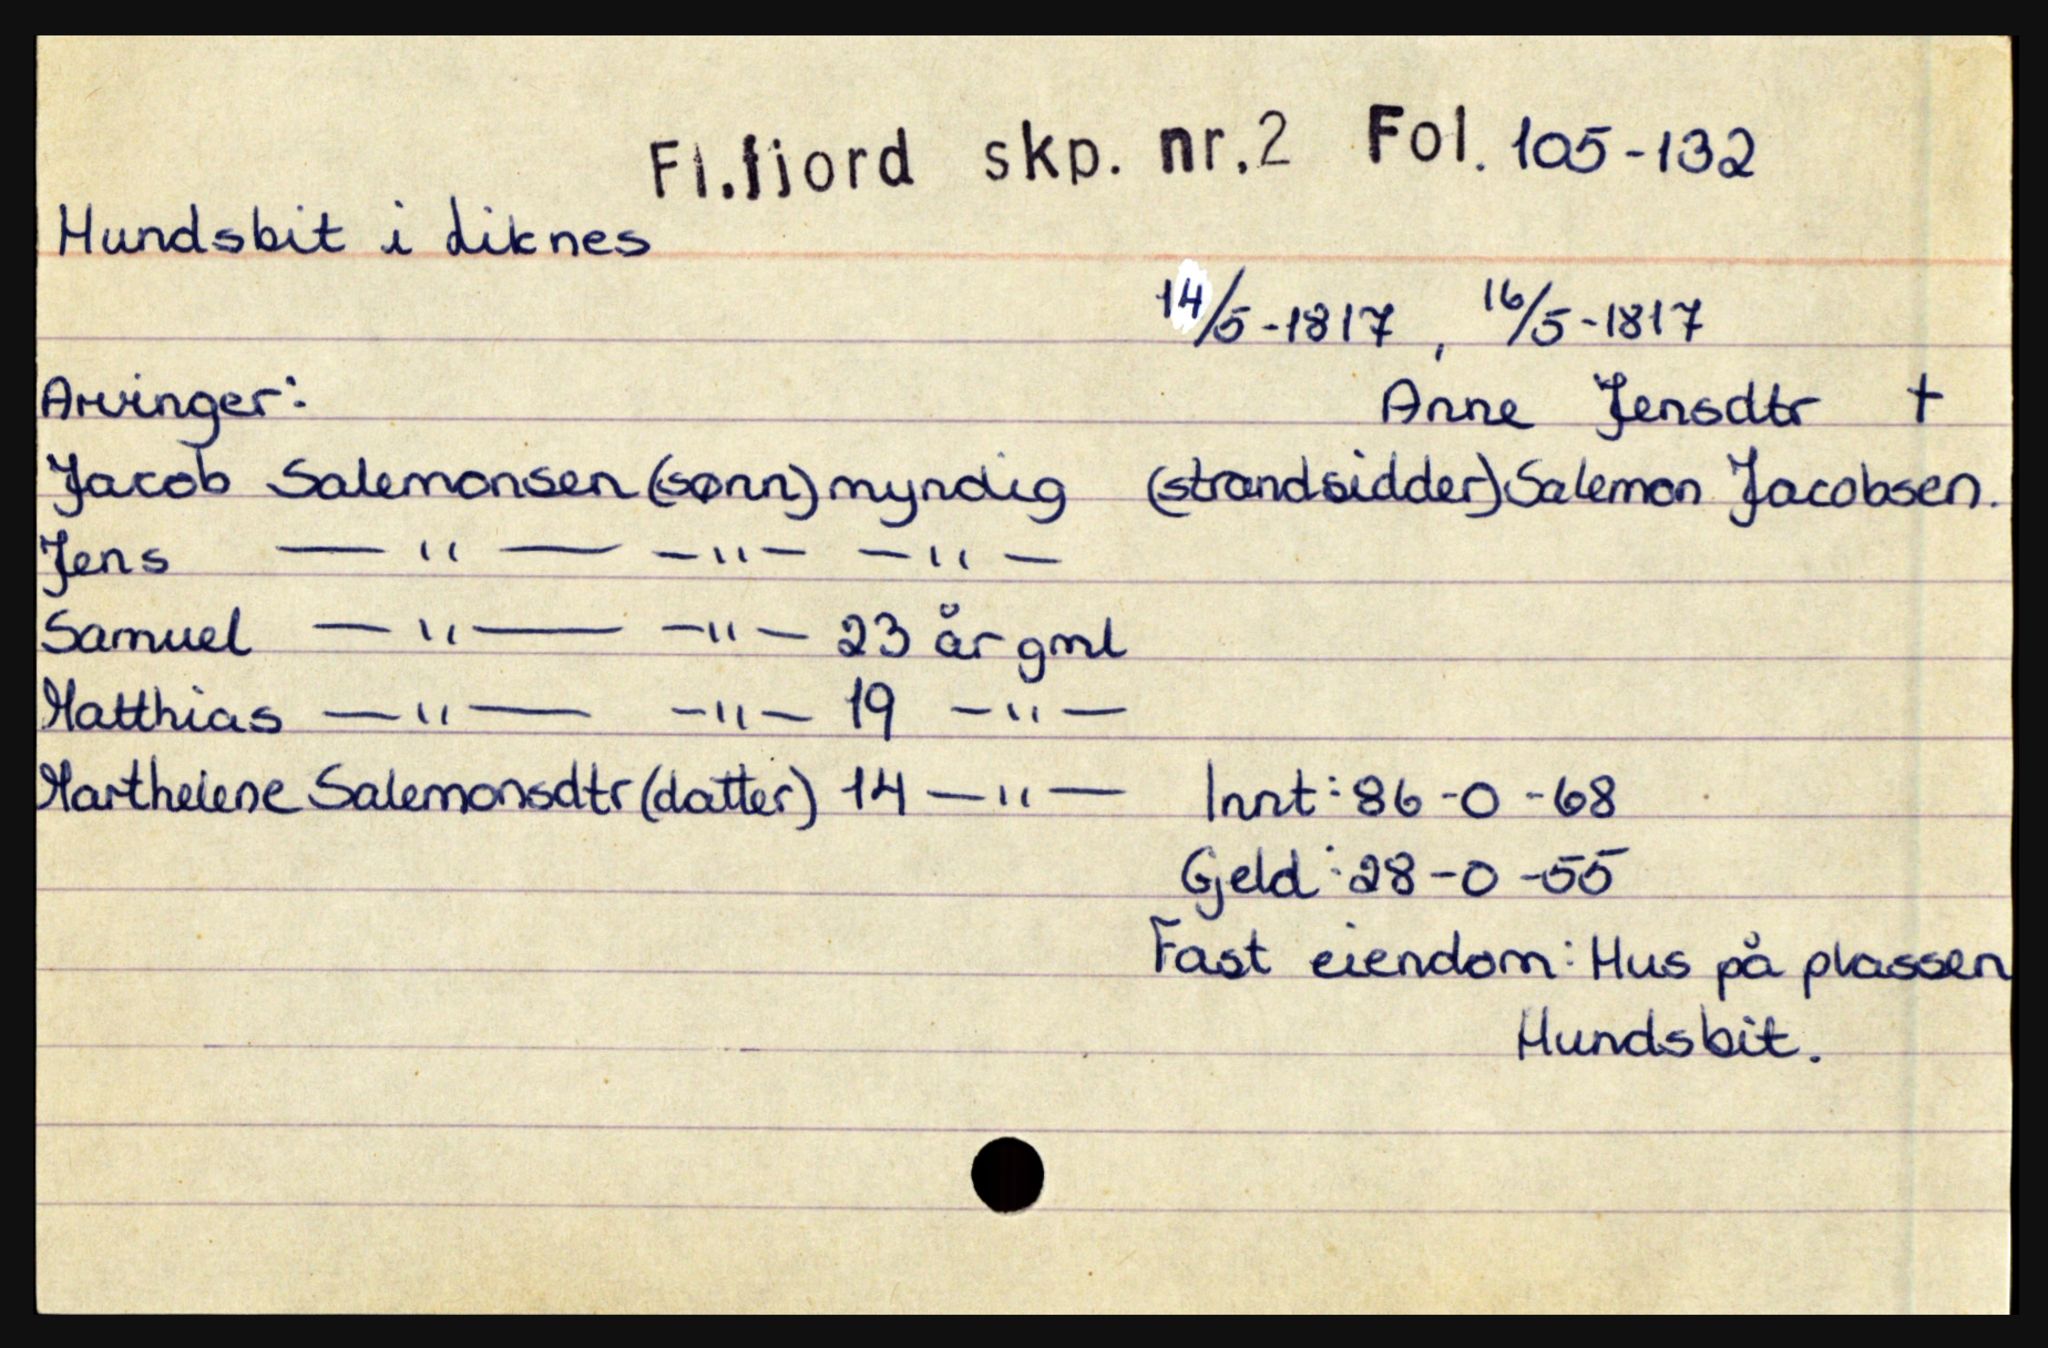 Fl.fjord skp. nr.2 Fol. 105-132
Hundsbit i Liknes
14/5-1817, 16/5-1817
Arvinger:
Anne Jensdtr †
Jacob Salemonsen (sønn) myndig
(strandsidder) Salemon Jacobsen.
Jens — " — — " — — " —
Samuel — " — — " — 23 år gml
Matthias — " — — " — 19 — " —
Marthelene Salemonsdtr (datter) 14 — " —
Innt: 86-0-68
Gjeld: 28-0-55
Fast eiendom: Hus på plassen
Hundsbit.